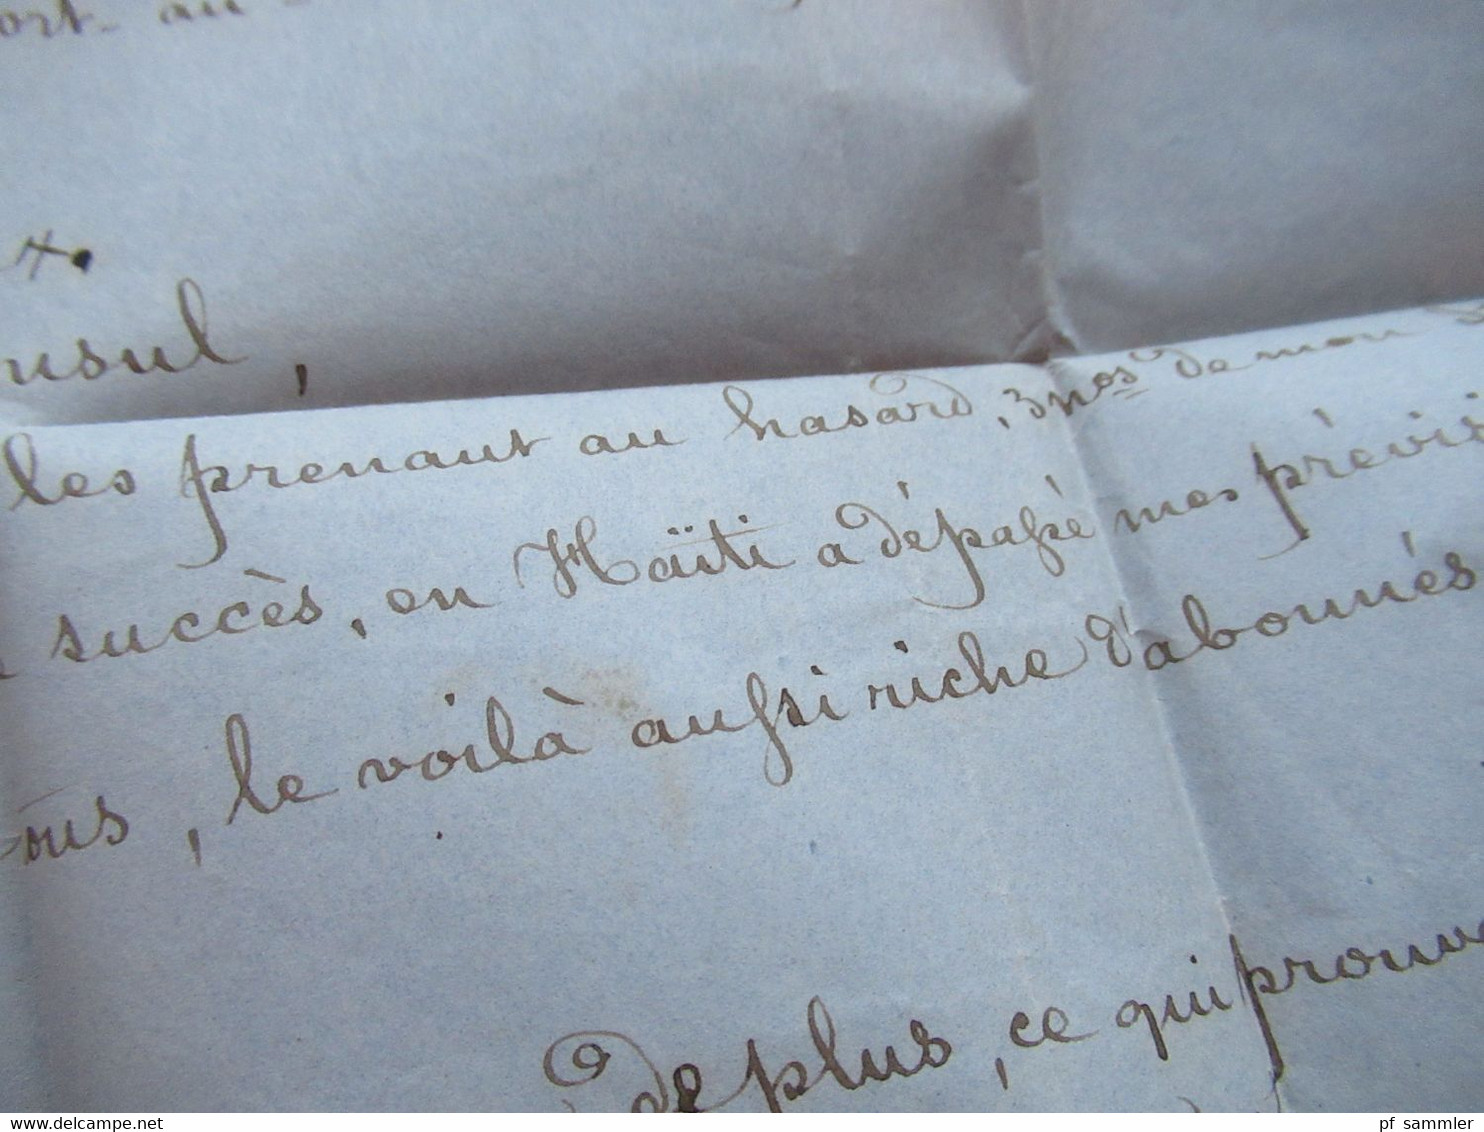 ort-au
x.
nsul,
les prenant au hasard, 3 nos de mon
succès, en Haïti a dépassé mes prévis
ous, le voilà aussi riche d'abonnés
De plus, ce qui prouve
delcampe.net
pf sammler